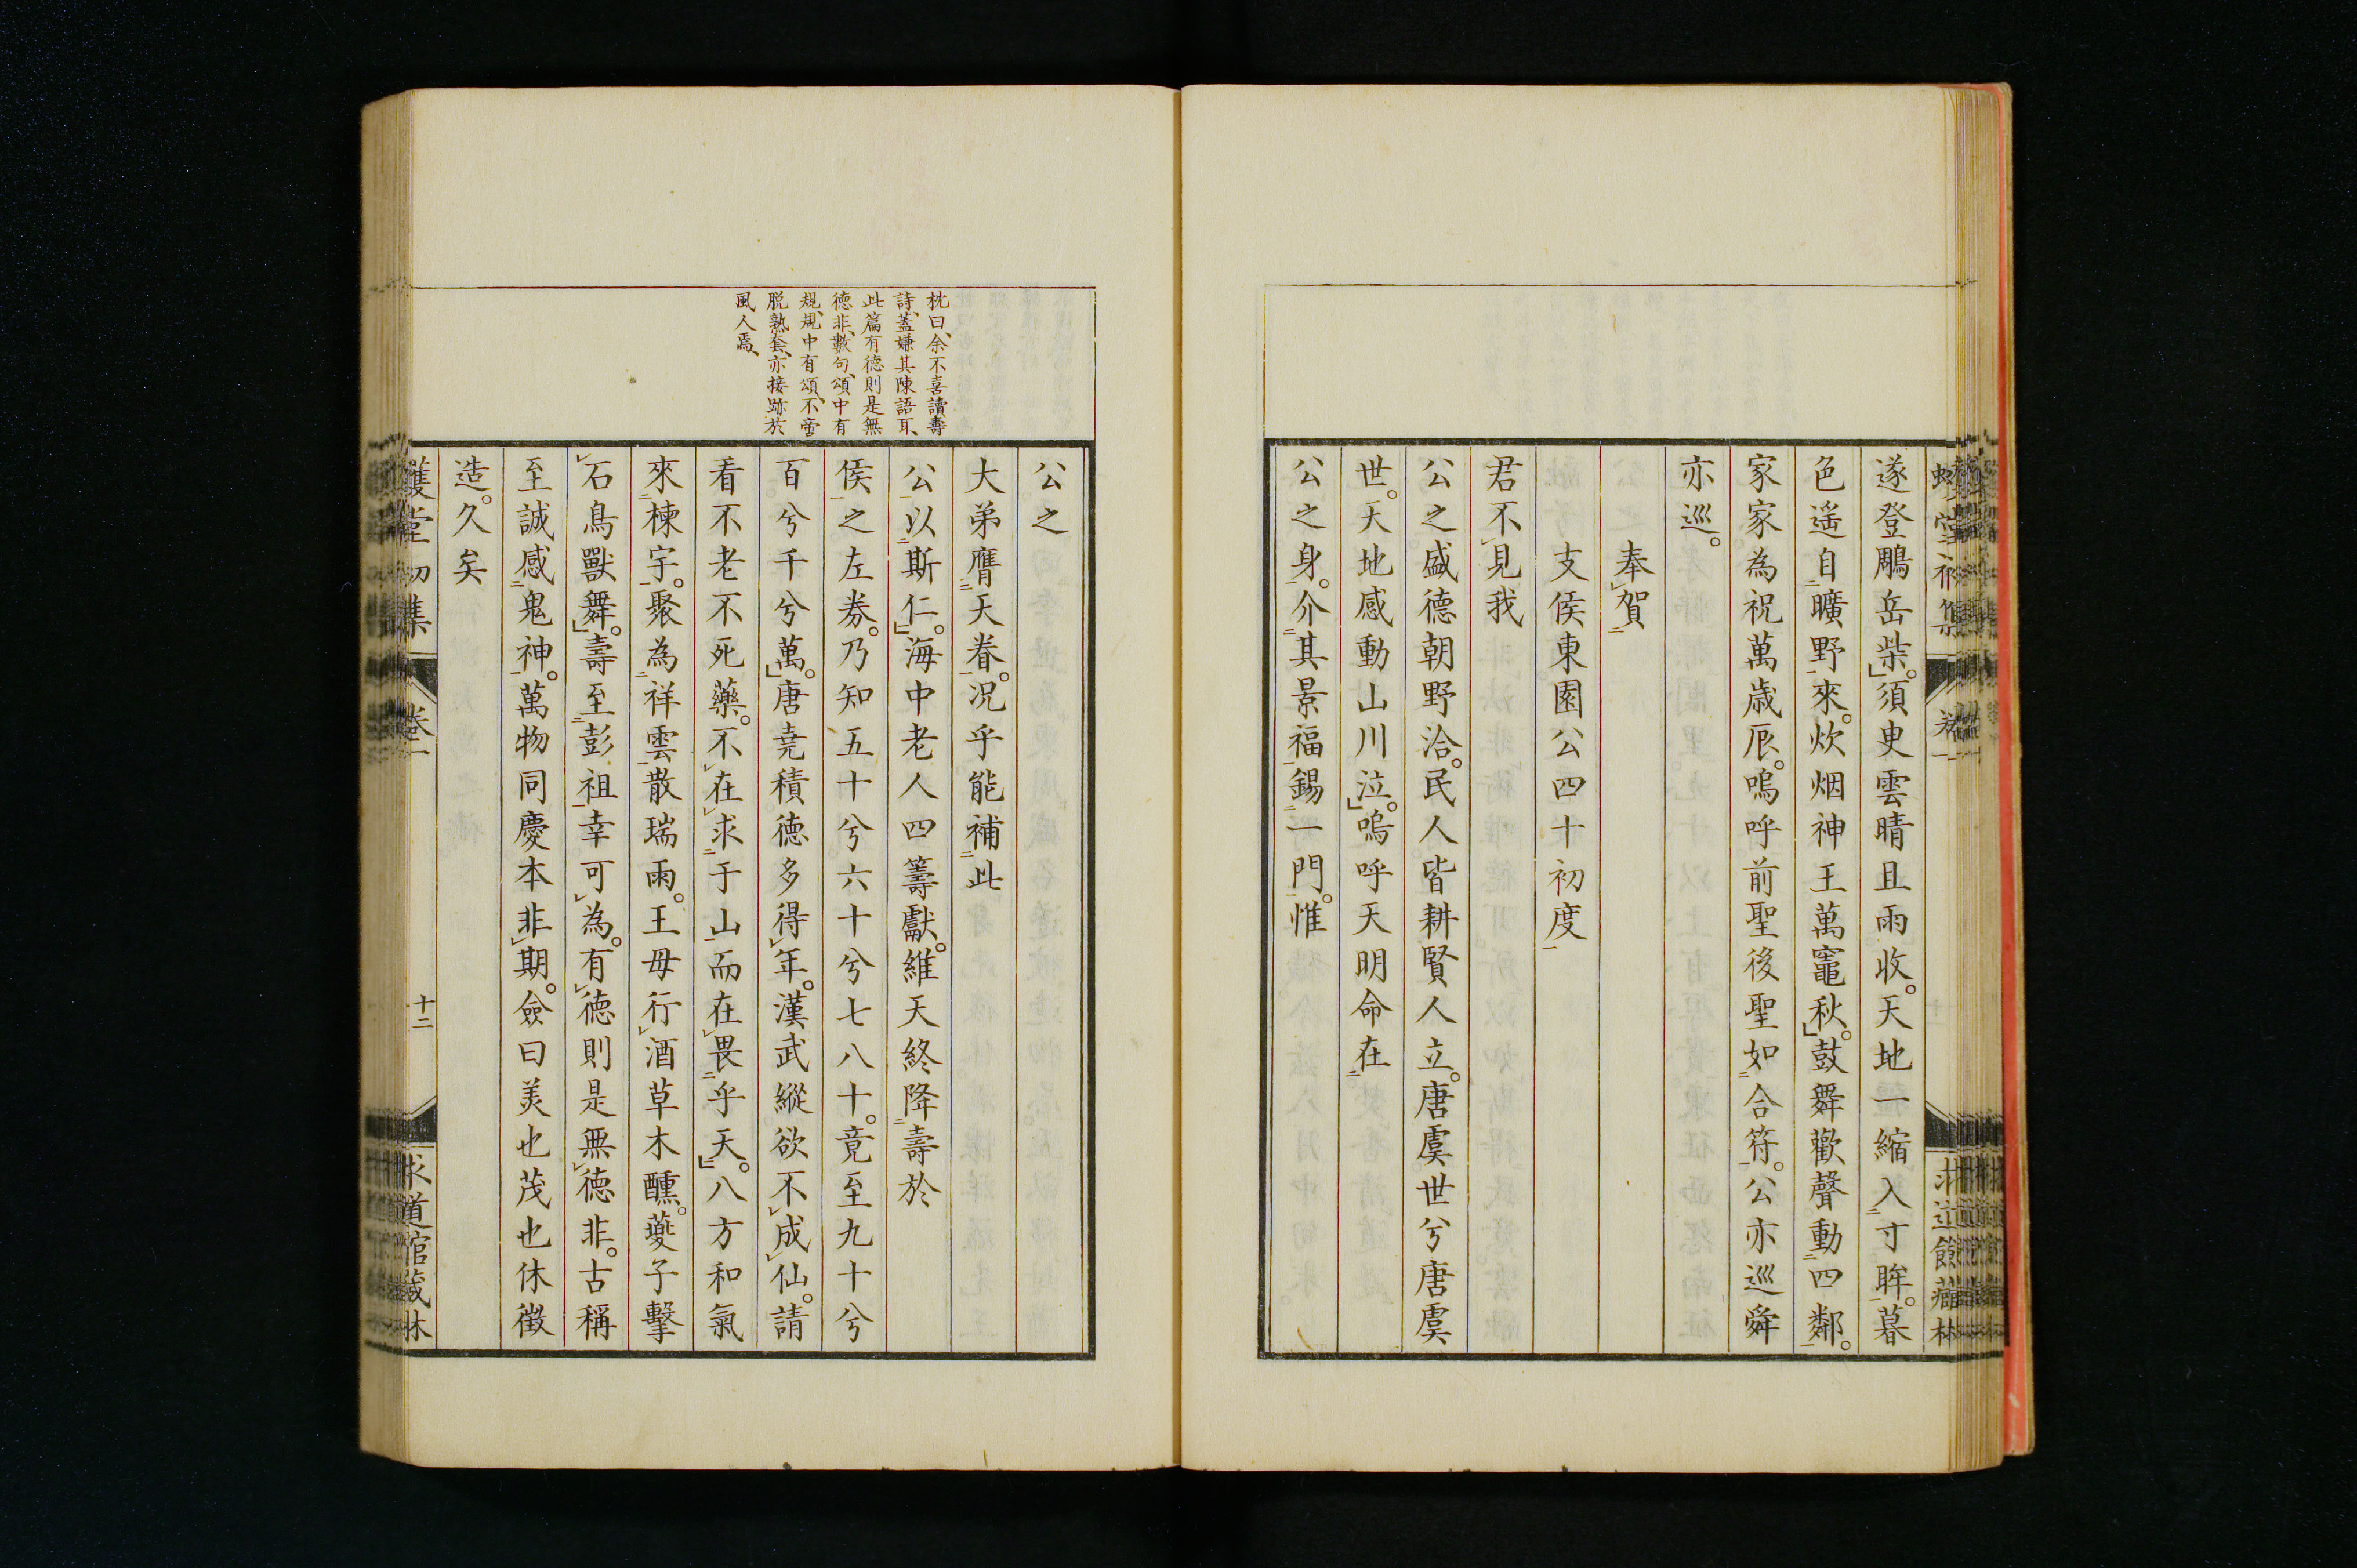 遂登鵰岳柴。須臾雲晴且雨收。天地一縮入寸眸。暮
色遥自曠野來。炊烟神王萬竈秋。鼓舞歡聲動四鄰。
家家為祝萬歳辰。嗚呼前聖後聖如合符。公亦巡舜
亦巡。
奉賀
支侯東園公四十初度
君不見我
公之盛德朝野洽。民人皆耕賢人立。唐虞世兮唐虞
世。天地感動山川泣。嗚呼天明命在
公之身。介其景福錫一門。惟
公之
大弟膺天眷。況乎能補此
公以斯仁。海中老人四籌獻。維天終降壽於
侯之左券。乃知五十兮六十兮七八十。竟至九十兮
百兮千兮萬。唐堯積德多得年。漢武縱欲不成仙。請
看不老不死藥。不在求于山而在畏乎天。八方和氣
來棟宇。聚為祥雲散瑞雨。王母行酒草木醺。夔子擊
石鳥獸舞。壽至彭祖幸可為。有德則是無德非。古稱
至誠感鬼神。萬物同慶本非期。僉曰美也茂也休徴
造。久矣
枕曰、余不喜讀壽
詩、蓋嫌其陳語耳、
此篇有德則是無
德非、數句、頌中有
規、規中有頌、不啻
脱熟套、亦接跡於
風人焉、
卷一
十二